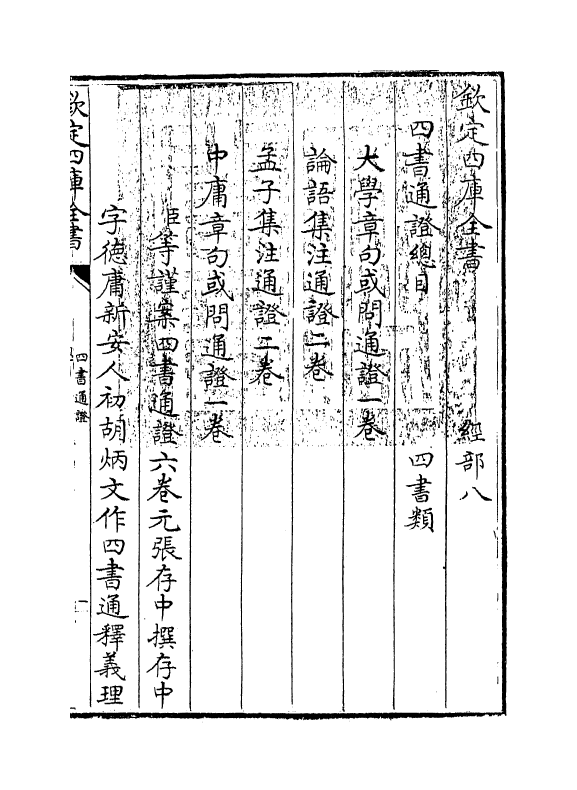 欽定四庫全書 經部八
四書通證總目 四書類
大學章句或問通證一卷
論語集注通證二卷
孟子集注通證二卷
中庸章句或問通證一卷
臣等謹案四書通證六卷元張存中撰存中
字德庸新安人初胡炳文作四書通釋義理
欽定四庫全書
四書通證
一